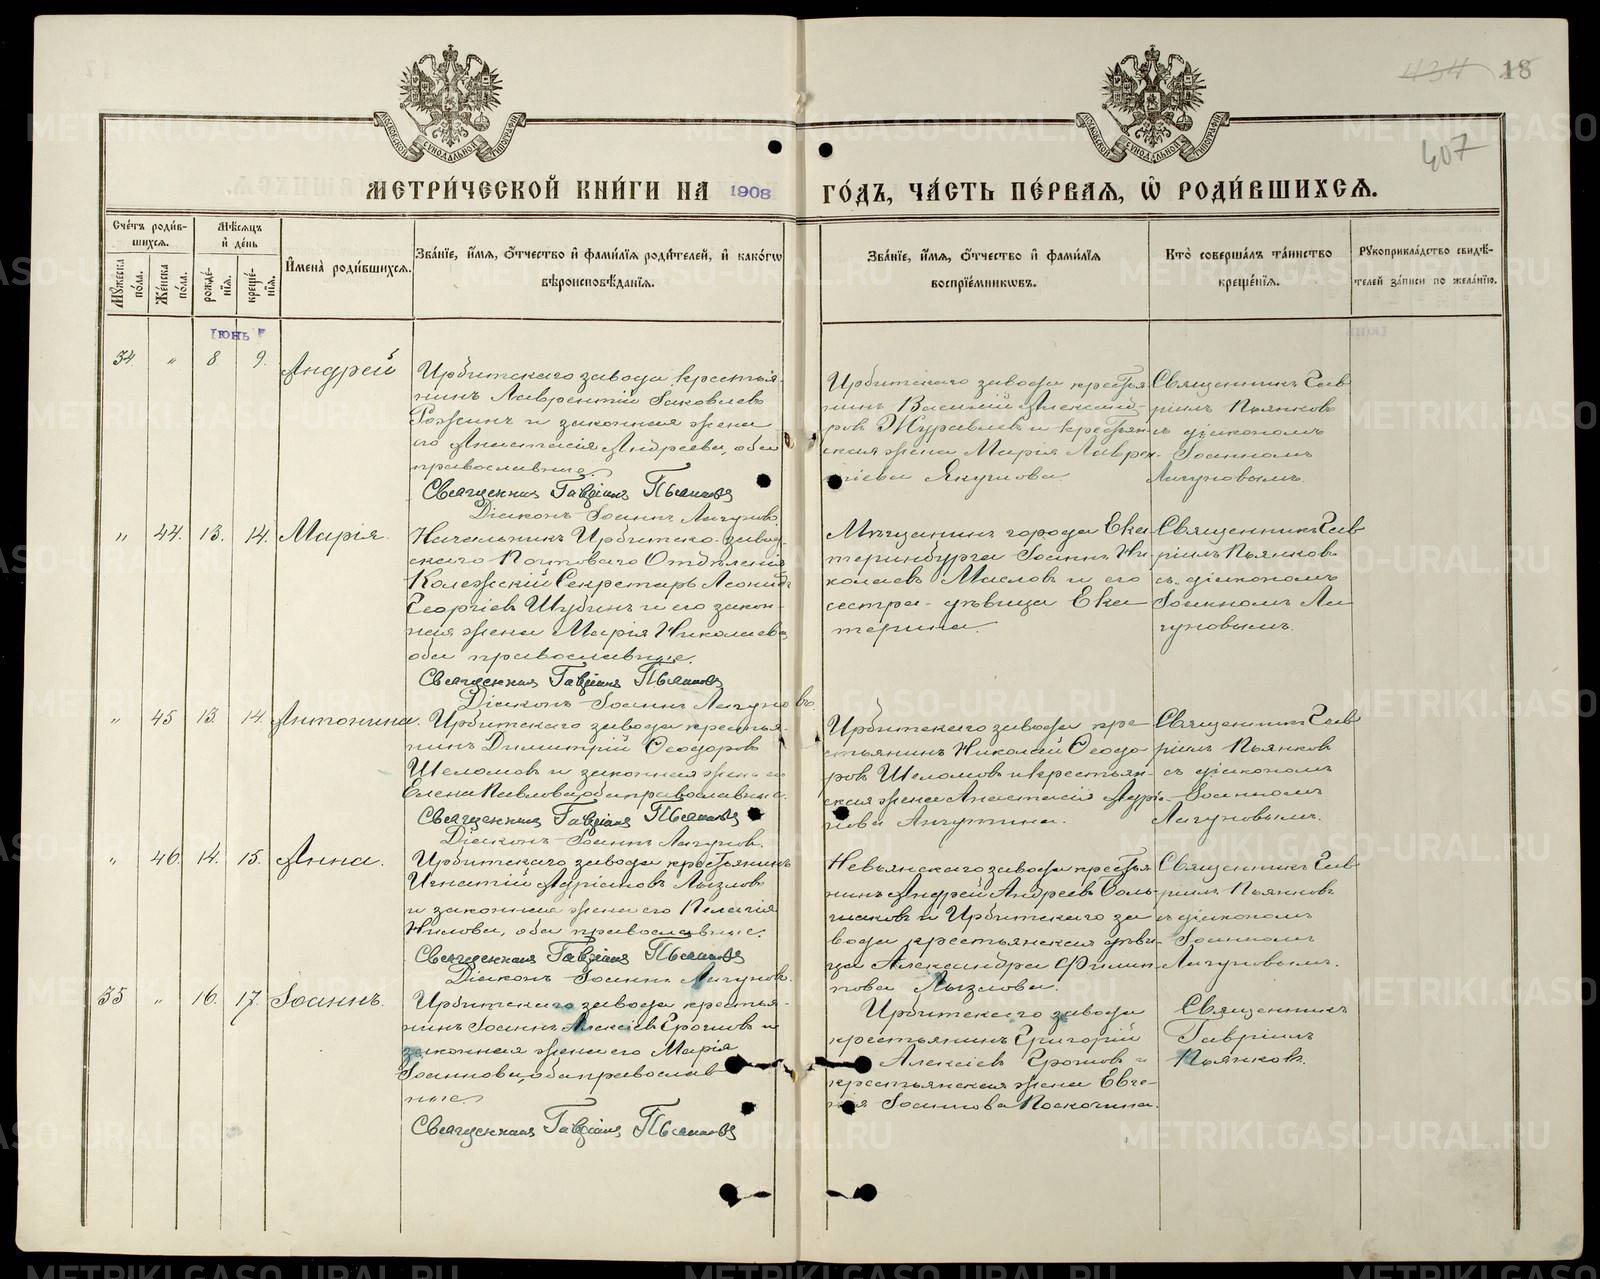 434 18
407
МОСКОВСКОЙ СѴНОДАЛЬНОЙ ТИПОГРАФІИ
МОСКОВСКОЙ СѴНОДАЛЬНОЙ ТИПОГРАФІИ
МЕТРИ́ЧЕСКОЙ КНИ́ГИ НА 1908 ГО́ДЪ, ЧА́СТЬ ПЕ́РВАЯ, Ѡ РОДИ́ВШИХСЯ.
Сче́тъ роди́в-
шихся.
Мѣ́сяцъ
и де́нь
Му́жеска
по́ла.
Же́нска
по́ла.
рожде́-
нїя.
креще́-
нїя.
Имена̀ роди́вшихся.
Зва́нїе, и́мя, о́тчество и фами́лїя роди́телей, и како́гѡ
вѣроисповѣ́данїя.
Зва́нїе, и́мя, о́тчество и фами́лїя
воспрїе́мникѡвъ.
Кто̀ соверша́лъ та́инство
креще́нїя.
Рукоприкла́дство свидѣ́-
телей за́писи по жела́нїю.
Іюнь
54 " 8 9. Андрей
Ирбитскаго завода крестья-
нинъ Лаврентій Іаковлевъ
Рожинъ и законная жена
его Анастасія Андреева, оба
православные.
Священникъ Гавріилъ Пьянковъ
Діаконъ Іоаннъ Лагуновъ
Ирбитскаго завода крестья-
нинъ Василій Александ-
ровъ Журавлевъ и крестьян-
ская жена Марія Лаврен-
тіева Якунова
Священникъ Гав-
ріилъ Пьянковъ
съ діакономъ
Іоанномъ
Лагуновымъ.
" 44. 13. 14. Марія.
Начальникъ Ирбитско-завод-
скаго Почтоваго Отдѣленія
Колежскій Секретарь Леонидъ
Георгіевъ Шубинъ и его закон-
ная жена Марія Николаева
оба православные.
Священникъ Гавріилъ Пьянковъ
Діаконъ Іоаннъ Лагуновъ.
Мѣщанинъ города Ека-
теринбурга Іоаннъ Ни-
колаевъ Масловъ и его
сестра - дѣвица Ека-
терина.
Священникъ Гав-
ріилъ Пьянковъ
съ діакономъ
Іоанномъ Ла-
гуновымъ.
" 45 13. 14. Антонина.
Ирбитскаго завода крестья-
нинъ Димитрій Ѳеодоровъ
Шеломовъ и законная жена его
Елена Павлова, оба православные.
Священникъ Гавріилъ Пьянковъ
Діаконъ Іоаннъ Лагуновъ.
Ирбитскаго завода кре-
стьянинъ Николай Ѳеодо-
ровъ Шеломовъ и крестьян-
ская жена Анастасія
Священникъ Гав-
ріилъ Пьянковъ
съ діакономъ
Іоанномъ
Лагуновымъ.
" 46. 14. 15. Анна.
Ирбитскаго завода крестьянинъ
Игнатій Адріановъ Лызловъ
и законная жена его Пелагія
Нилова, оба православные.
Священникъ Гавріилъ Пьянковъ
Діаконъ Іоаннъ Лагуновъ.
Невьянскаго завода крестья-
нинъ Андрей Андреевъ
и Ирбитскаго за-
вода крестьянская дѣви-
ца Александра Филип-
пова Лызлова.
Священникъ Гав-
ріилъ Пьянковъ
съ діакономъ
Іоанномъ
Лагуновымъ.
55 " 16. 17. Іоаннъ.
Ирбитскаго завода крестья-
нинъ Іоаннъ Алексіевъ Ерошовъ и
законная жена его Марія
Іоаннова, оба православ-
ные.
Священникъ Гавріилъ Пьянковъ
Ирбитскаго завода
крестьянинъ Григорій
Алексіевъ Ерошовъ и
крестьянская жена Евге-
нія Іоаннова Поскочина.
Священникъ
Гавріилъ
Пьянковъ.
METRIKI.GASO-URAL.RU